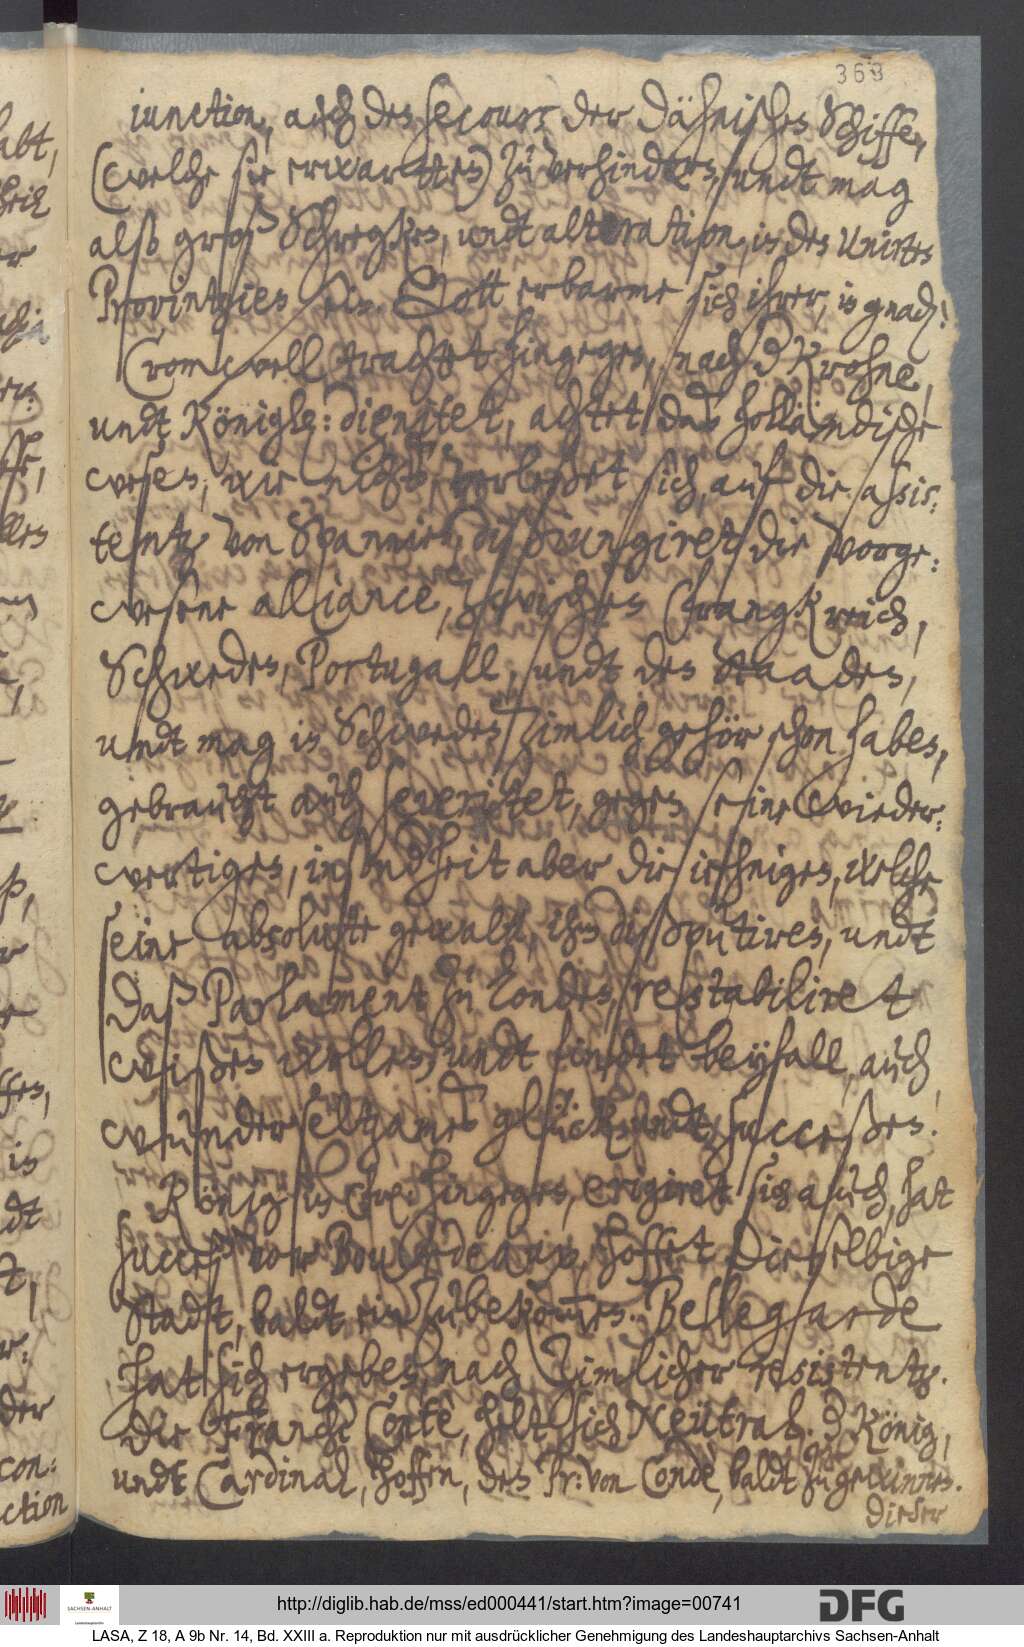 363
iunction, auch des secours der Dähnischen Schiffe,
(welche sie erwartten) zu verhindern, undt mag
alß groß Schregken, undt alteration, in den Unirten
Provintzien sein. Gott erbarme sich ihrer, in gnad(en)!
Cromwell trachtet hingegen, nach d(er) Krohne,
undt Königl: digniteet, achtet das holländische
wesen, wie nichts, verleßet sich, auf die assis:
tentz von Spannien, disjungiret die vorge:
wesene alliance, zwischen Frangkreich,
Schweden, Portugall, undt den Staaden,
undt mag in Schweden zimlich gehör schon haben,
gebraucht auch severitet, gegen seine wieder:
wertigen, insond(er)heit aber diejehnigen, welche
seine absolute gewalt, ihm disputiren, undt
daß Parlament zu Londen, restabiliret
wißen wollen, undt findet beyfall, auch
wunderselthames glück, undt successen.
König in Fr: hingegen, erigiret sich auch, hat
succeß vor Bourdeaux, hoffet dieselbige
Stadt, baldt ein zubekommen. Bellegarde
hat sich ergeben, nach zimlicher resistentz.
Die Franche Conté, helt sich Neutral. d(er) König,
undt Cardinal, hoffen, den Pr: von Condè, baldt zu gewinnen.
Dieser
abt,
er
lles
is
dt
der
con:
ction
SACHSEN-ANHALT
Landeshauptarchiv
http://diglib.hab.de/mss/ed000441/start.htm?image=00741
DFG
LASA, Z 18, A 9b Nr. 14, Bd. XXIII a. Reproduktion nur mit ausdrücklicher Genehmigung des Landeshauptarchivs Sachsen-Anhalt